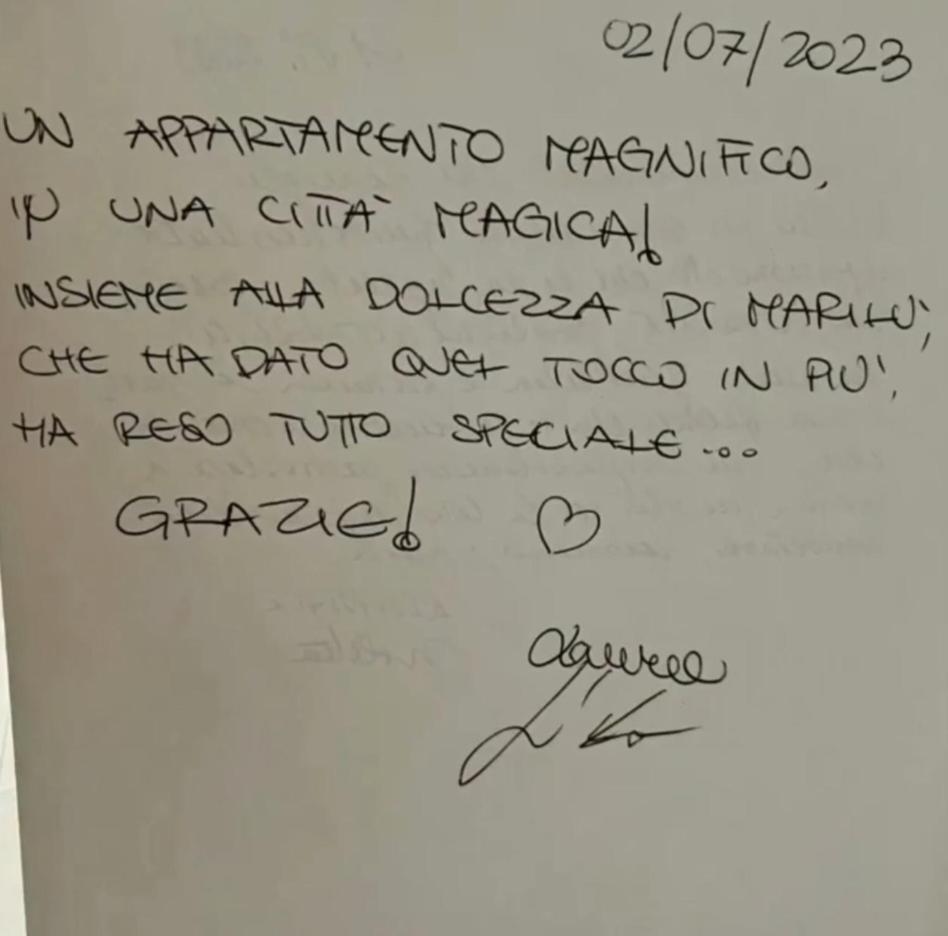 02/07/2023
UN APPARTAMENTO MAGNIFICO,
IN UNA CITTÀ MAGICA!
INSIEME ALLA DOLCEZZA DI MARILÙ,
CHE HA DATO QUEL TOCCO IN PIÙ,
HA RESO TUTTO SPECIALE...
GRAZIE! ♡